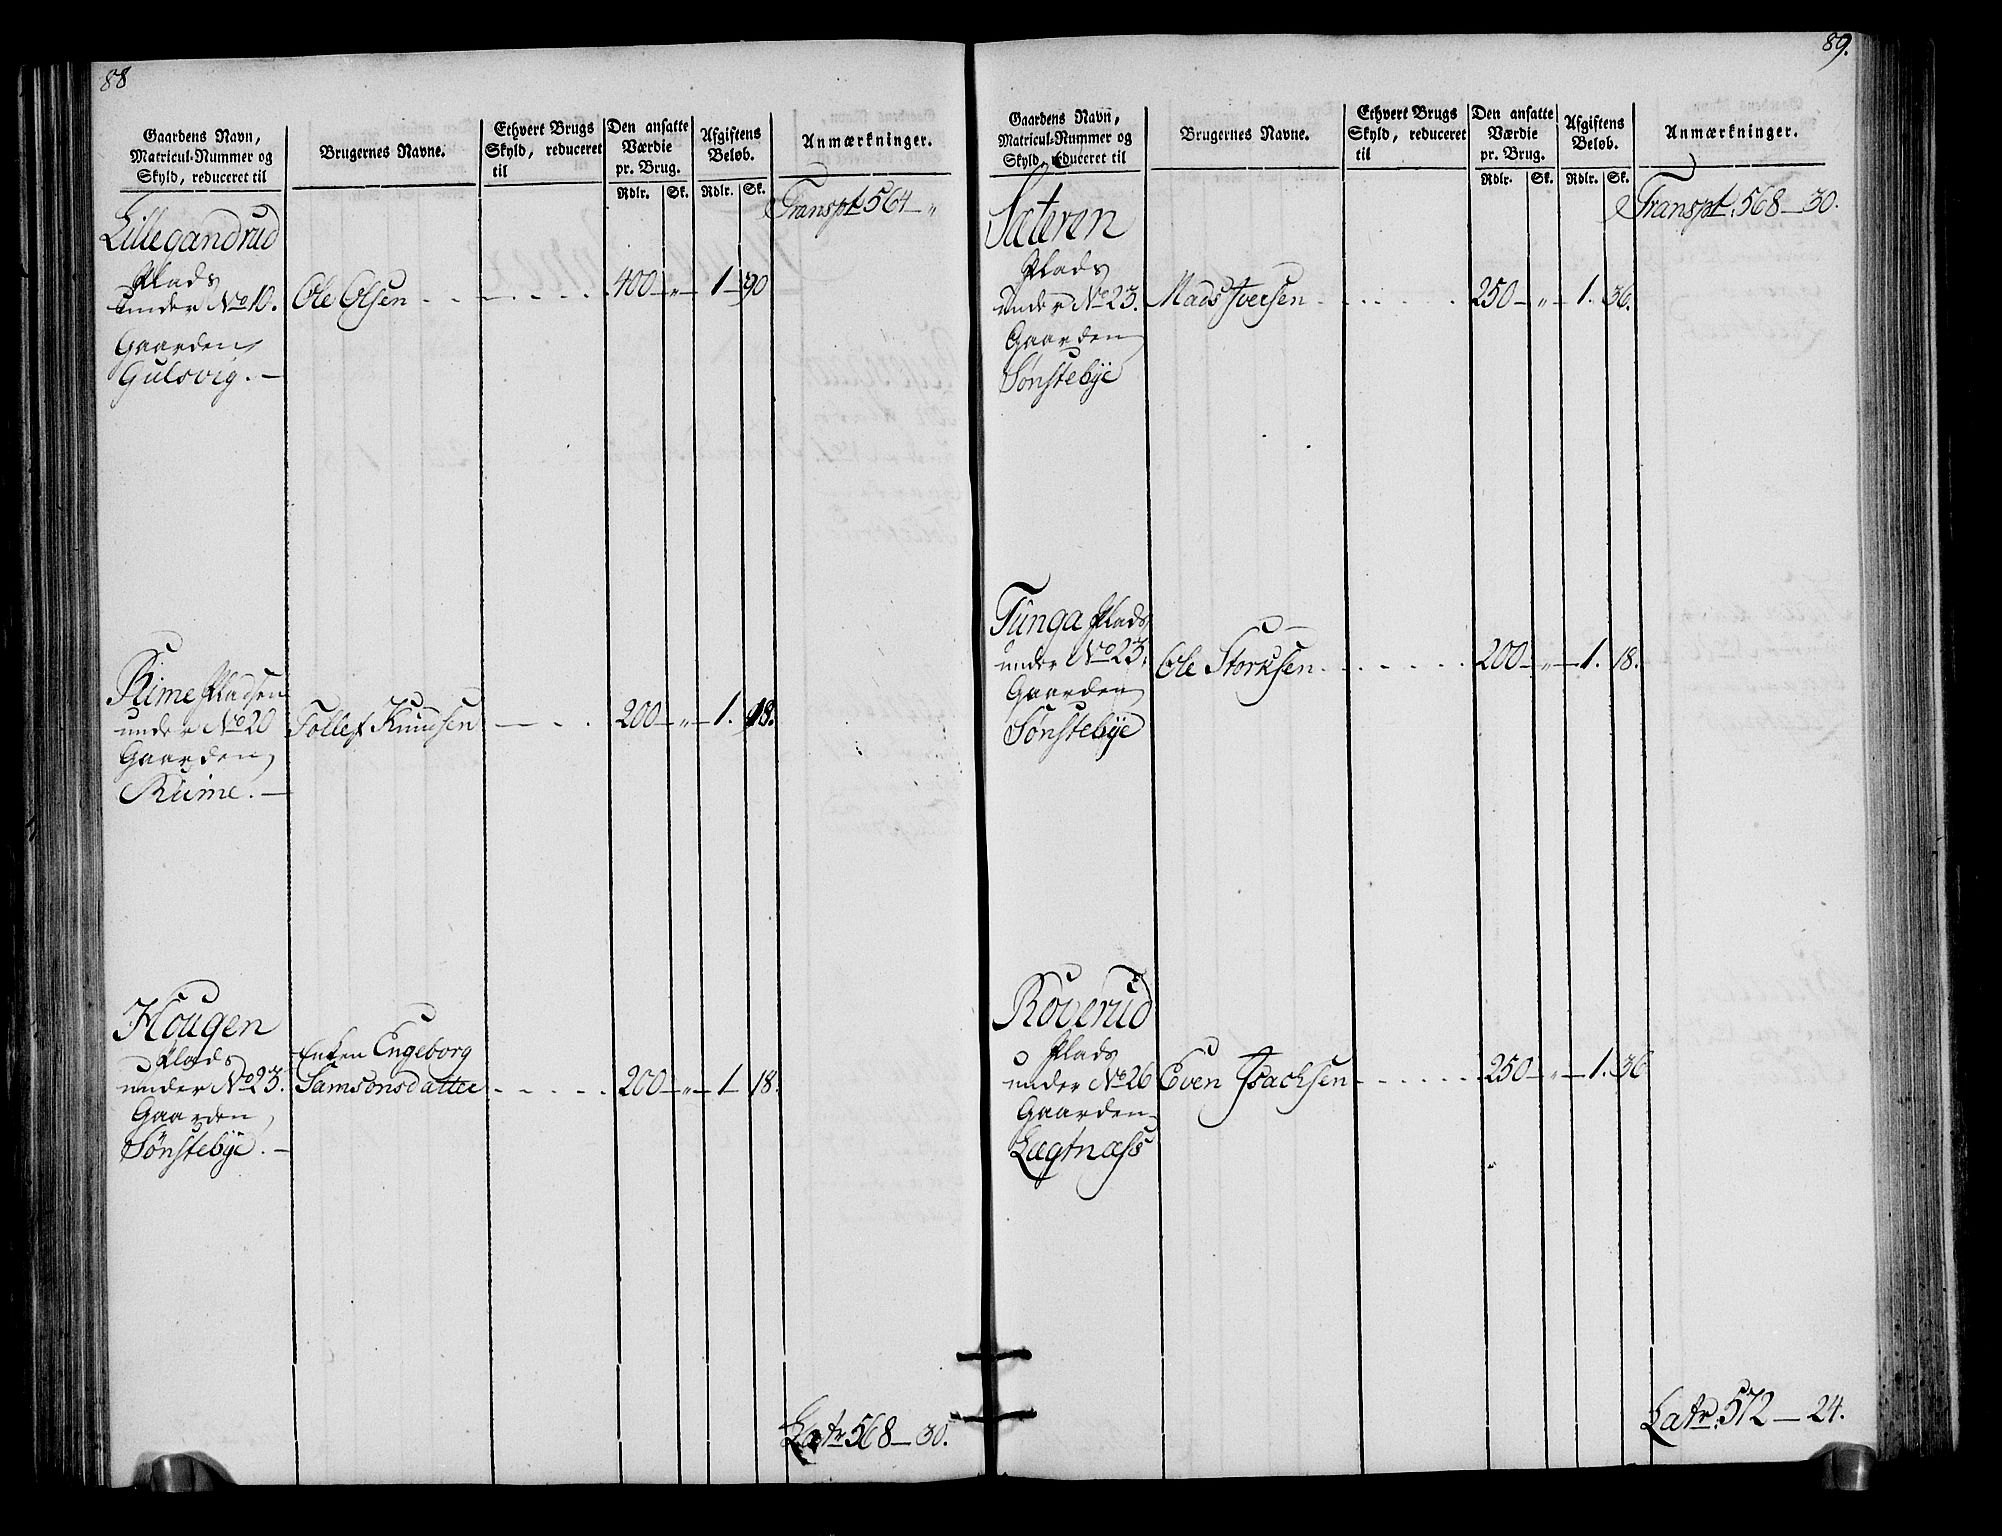 88
Gaardens Navn, Matricul-Nummer og Skyld, reduceret til
Brugernes Navne.
Ethvert Brugs Skyld, reduceret til
Den ansatte Værdie pr. Brug.
Afgiftens Beløb.
Anmærkninger.
Rdlr. Sk. Rdlr. Sk.
Transpt 564 — „
Lillegandrud
Plads
under No 10. Ole Olsen 400 — „ — 1 — 90
Gaarden
Gulsvig. —
Rime Pladsen
under No 20 Tollef Knudsen 200 — „ — 1. 18.
Gaarden
Riime. —
Hougen
Plads Enken Engeborg
under No 23. Samsonsdatter 200 — „ — 1 — 18.
Gaarden
Sønstebÿe. —
Latr 568 — 30.
89.
Gaardens Navn, Matricul-Nummer og Skyld, reduceret til
Brugernes Navne.
Ethvert Brugs Skyld, reduceret til
Den ansatte Værdie pr. Brug.
Afgiftens Beløb.
Anmærkninger.
Rdlr. Sk. Rdlr. Sk.
Transpt. 568 — 30.
Sæteren
Plads
under No 23. Mads Iversen 250 — „ — 1. 36.
Gaarden
Sønstebÿe
Tunga Plads
under No 23. Ole Storksen 200 — „ — 1. 18.
Gaarden
Sønstebÿe
Roverud
Plads
under No 26 Even Isachsen 250 — „ — 1. 36
Gaarden
Lægtnæss
Latr. 572 — 24.